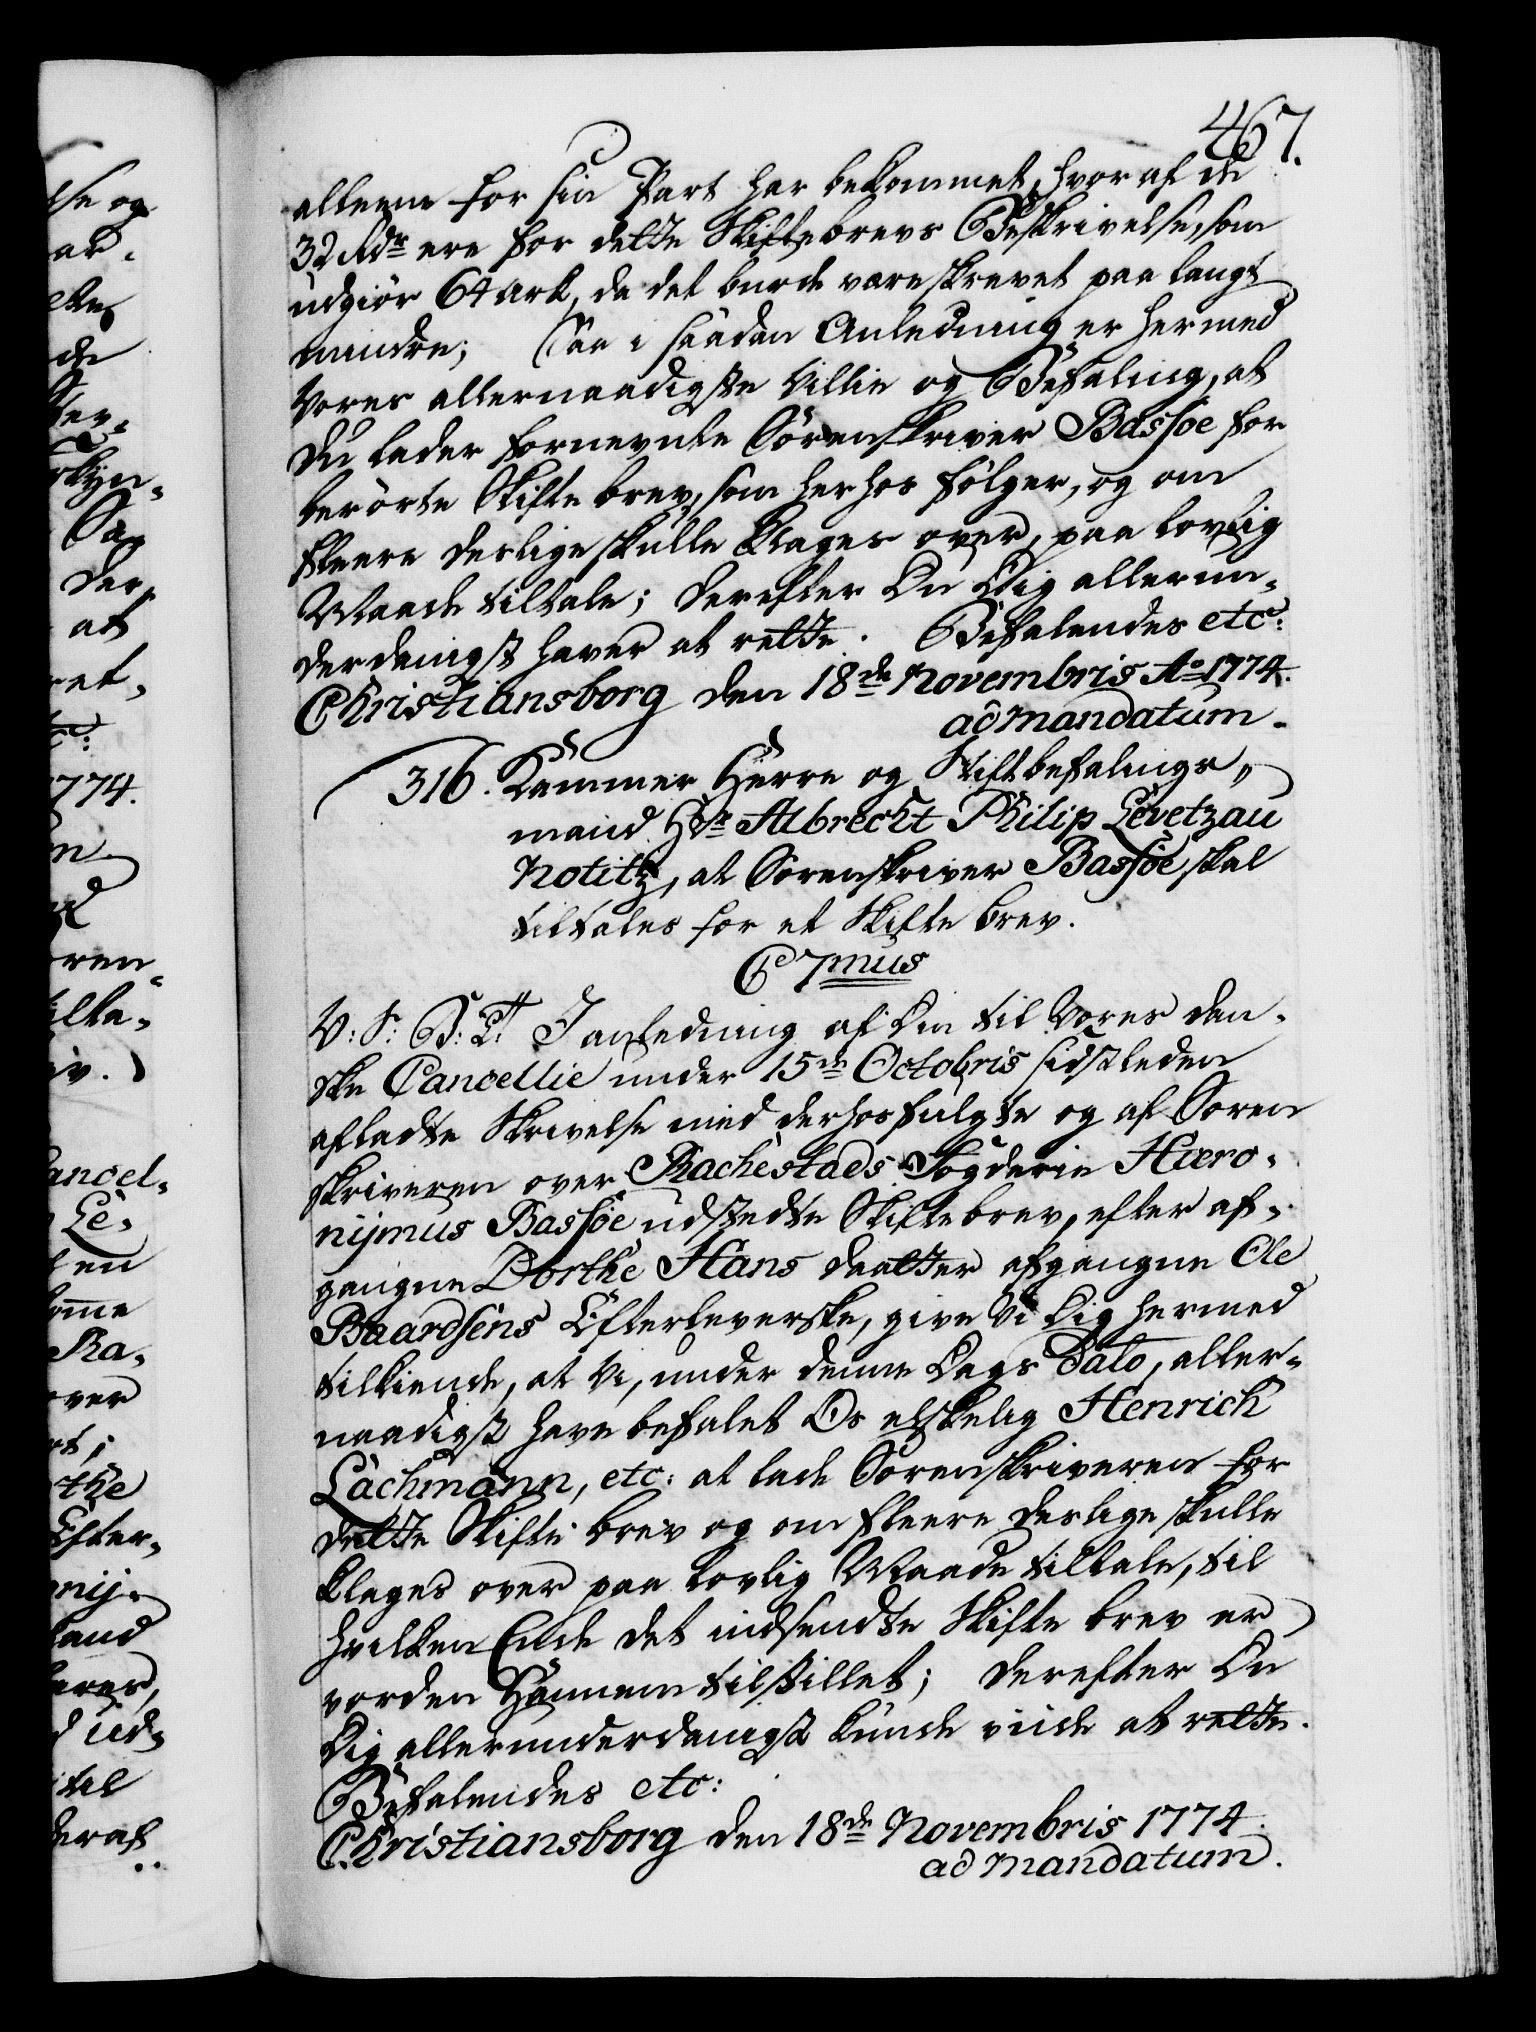 467.
alleene for sin Part har bekommet, hvoraf de
32 Rdr ere for dette Skiftebrevs Beskrivelse, som
udgiør 64 Ark, da det burde være skrevet paa langt
mindre; Saa i saadan Anledning er hermed
Vores allernaadigste Villie og Befaling, at
Du lader fornevnte Sørenskriver Bassøe for
berørte Skiftebrev, som herhos følger, og om
fleere deslige skulle klages over, paa lovlig
Maade tiltale; Derefter Du Dig allerun-
derdanigst haver at rette. Befalendes etc:
Christiansborg den 18de Novembris Ao 1774.
ad mandatum.
316. Kammer Herre og Stiftbefalings-
mand Hr Albrecht Philip Levetzau
Notitz, at Sorenskriver Bassøe skal
tiltales for et Skifte brev.
C 7mus
V: S: B: T: I anledning af Din til Vores dan-
ske Cancellie under 15de Octobris sidstleden
afladte Skrivelse med derhosfulgte og af Soren
skriveren over Rachestads Fogderie Hiero-
nijmus Bassøe udstedte Skiftebrev, efter af-
gangne Dorthe Hans daatter afgangne Ole
Baardsens Efterleverske, give Vi Dig hermed
tilkiende, at Vi, under denne Dags Dato, aller-
naadigst have befalet Os elskelig Henrich
Lachmann, etc: at lade Sorenskriveren for
dette Skifte brev og om fleere deslige skulle
klages over paa lovlig Maade tiltale, til
hvilken Ende det indsendte Skifte brev er
vorden Hannem tilstillet; Derefter Du
Dig allerunderdanigst kunde viide at rette.
Befalendes etc:
Christiansborg den 18de Novembris 1774.
ad mandatum.